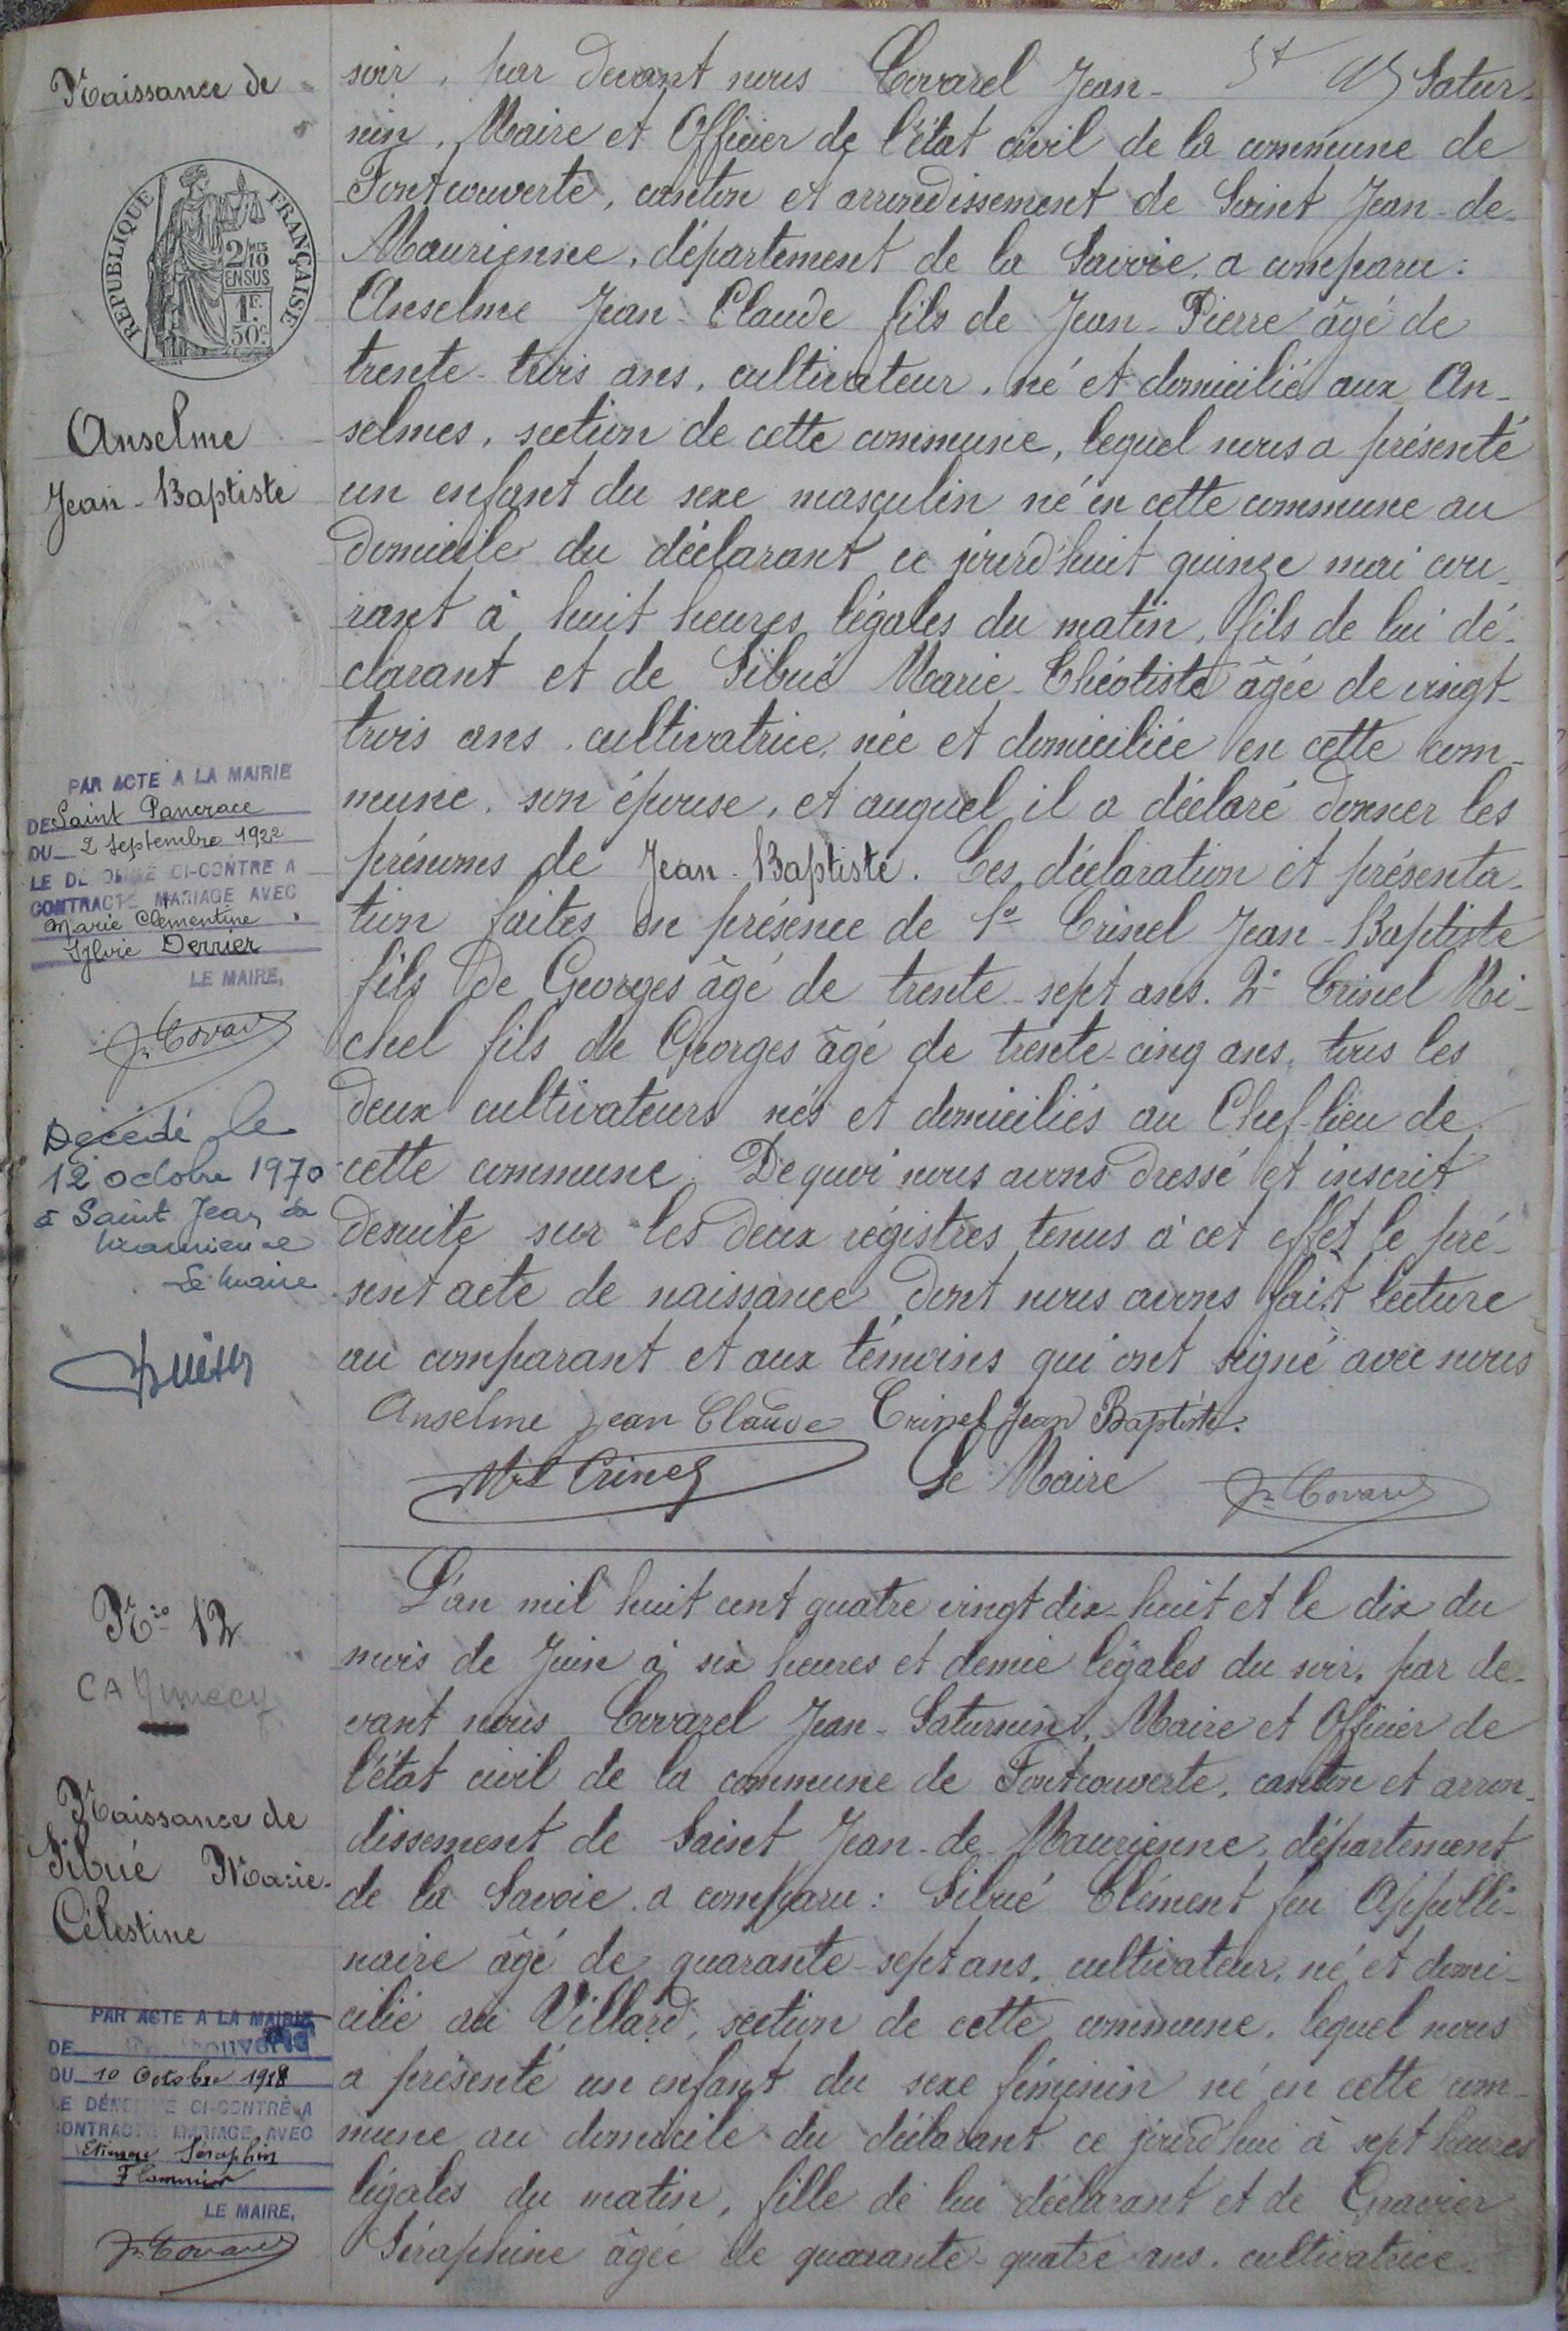 Naissance de
REPUBLIQUE FRANÇAISE
2/10 MES
EN SUS
1F.
50c.
Anselme
Jean-Baptiste
PAR ACTE A LA MAIRIE
DE Saint Pancrace
DU 2 Septembre 1922
LE DÉNOMMÉ CI-CONTRE A
CONTRACTÉ MARIAGE AVEC
Marie Clémentine
Sylvie Derrier
LE MAIRE,
Jn Covarel
Décédé le
12 octobre 1970
à Saint Jean de
Maurienne
Le Maire
soir, par devant nous Covarel Jean- Satur-
nin, Maire et Officier de l'état civil de la commune de
Fontcouverte, canton et arrondissement de Saint Jean-de-
Maurienne, département de la Savoie, a comparu:
Anselme Jean-Claude fils de Jean-Pierre âgé de
trente-trois ans, cultivateur, né et domicilié aux An-
selmes, section de cette commune, lequel nous a présenté
un enfant du sexe masculin né en cette commune au
domicile du déclarant ce jourd'huit quinze mai cou-
rant à huit heures légales du matin, fils de lui dé-
clarant et de Sibué Marie-Théotiste âgée de vingt-
trois ans, cultivatrice, née et domiciliée en cette com-
mune, son épouse, et auquel il a déclaré donner les
prénoms de Jean-Baptiste. Ces déclaration et présenta-
tion faites en présence de 1° Crinel Jean-Baptiste
fils de Georges âgé de trente-sept ans. 2° Crinel Mi-
chel fils de Georges âgé de trente-cinq ans, tous les
deux cultivateurs nés et domiciliés au Chef-lieu de
cette commune. De quoi nous avons dressé et inscrit
desuite sur les deux régistres tenus à cet effet le pré-
sent acte de naissance dont nous avons fait lecture
au comparant et aux témoins qui ont signé avec nous
Anselme jean Claude Crinel Jean Baptiste.
Mel Crinel Le Maire Jn Covarel
Nro 12
CA Annecy
Naissance de
Sibué Marie-
Célestine
PAR ACTE A LA MAIRIE
DE Fontcouverte
DU 10 Octobre 1918
LE DÉNOMMÉ CI-CONTRE A
CONTRACTÉ MARIAGE AVEC
Etienne Séraphin
LE MAIRE,
Jn Covarel
L'an mil huit cent quatre vingt dix-huit et le dix du
mois de Juin à six heures et demie légales du soir, par de-
vant nous Covarel Jean-Saturnin, Maire et Officier de
l'état civil de la commune de Fontcouverte, canton et arron-
dissement de Saint Jean-de-Maurienne, département
de la Savoie, a comparu: Sibué Clément feu Appolli-
naire âgé de quarante-sept ans, cultivateur, né et domi-
cilié au Villard, section de cette commune, lequel nous
a présenté un enfant du sexe féminin né en cette com-
mune au domicile du déclarant ce jourd'hui à sept heures
légales du matin, fille de lui déclarant et de Gravier
Séraphine âgée de quarante-quatre ans, cultivatrice